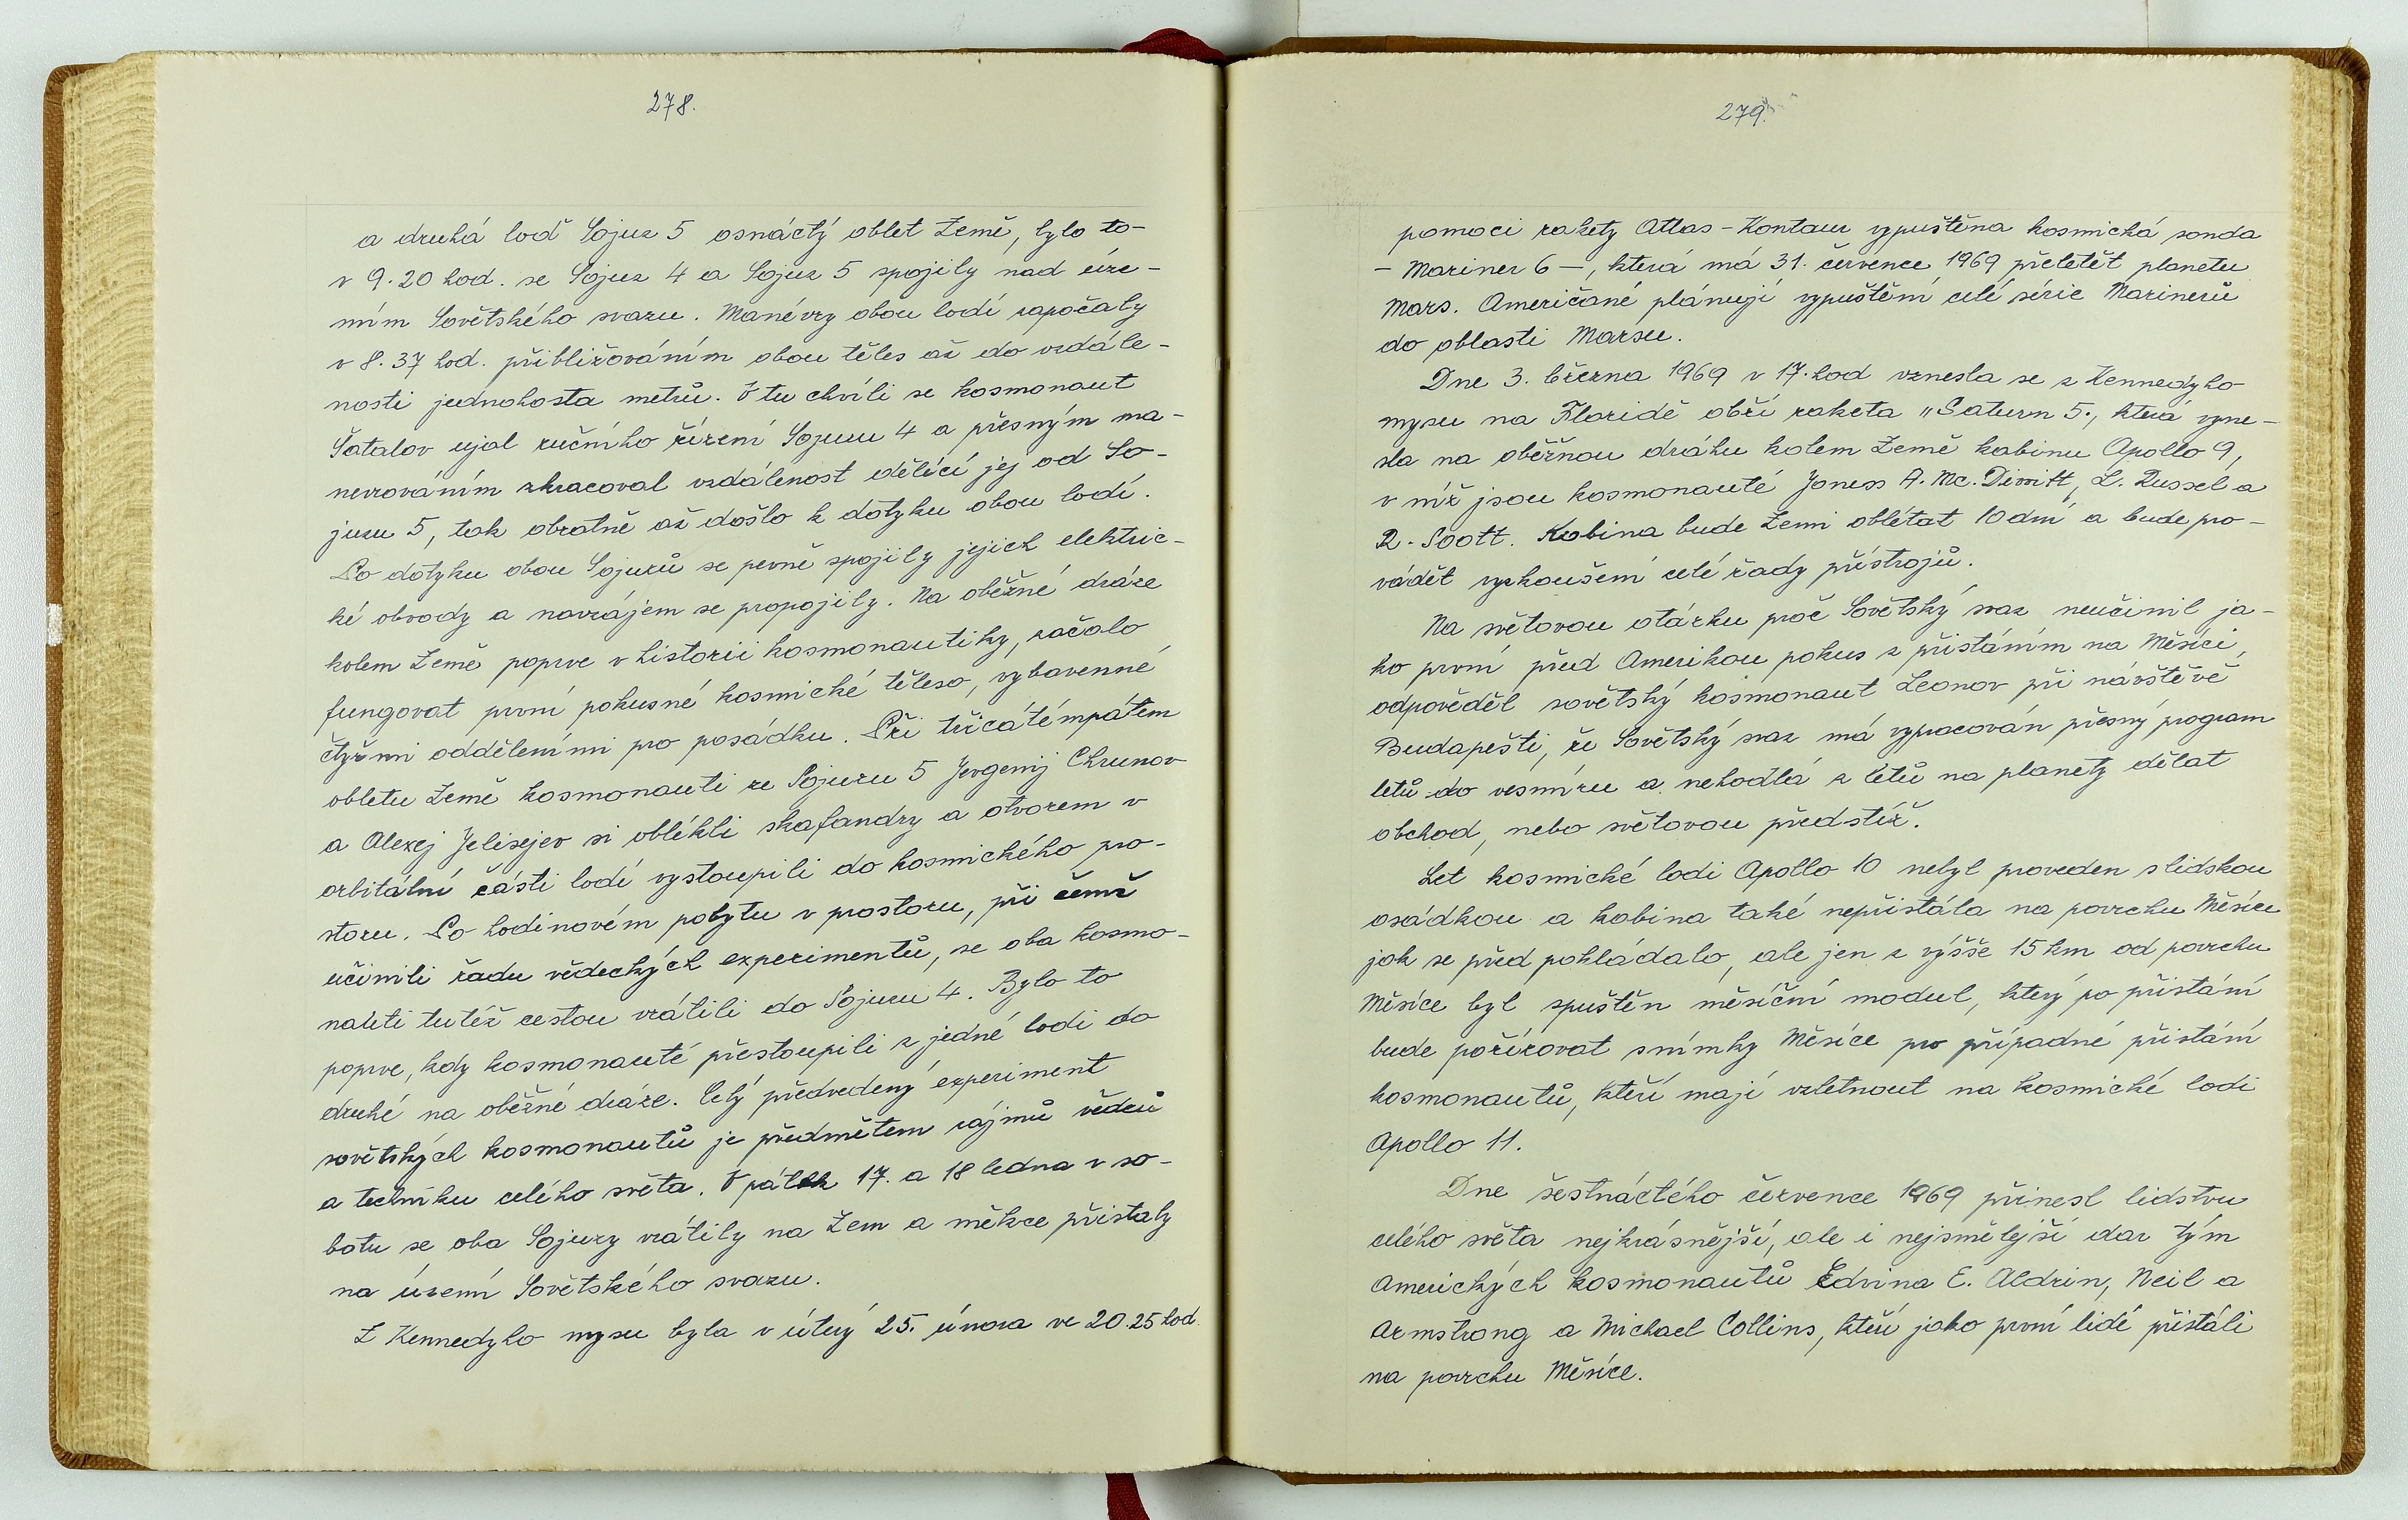 278.
a druhá loď Sojuz 5 osnáctý oblet Země, bylo to-
v 9.20 hod. se Sojuz 4 a Sojuz 5 spojily nad úze-
mím Sovětského svazu. Manévry obou lodí započaly
v 8.37 hod. přibližováním obou těles až do vzdále-
nosti jednohosta metrů. V tu chvíli se kosmonaut
Šatalov ujal ručního řízení Sojuzu 4 a přesným ma-
nevrováním zkracoval vzdálenost dělící jej od So-
juzu 5, tak obratně až došlo k dotyku obou lodí.
Po dotyku obou Sojuzů se pevně spojily jejich elektric-
ké obvody a navzájem se propojily. Na oběžné dráze
kolem Země poprve v historii kosmonautiky, začalo
fungovat první pokusné kosmické těleso, vybavenné
čtyřmi odděleními pro posádku. Při třicátémpátem
obletu Země kosmonauti ze Sojuzu 5 Jevgenij Chrunov
a Alexej Jelisejev si oblékli skafandry a otvorem v
orbitální části lodí vystoupili do kosmického pro-
storu. Po hodinovém pobytu v prostoru, při čemž
učinili řadu vědeckých experimentů, se oba kosmo-
nauti tutéž cestou vrátili do Sojuzu 4. Bylo to
poprve, kdy kosmonauté přestoupili z jedné lodi do
druhé na oběžné dráze. Celý předvedený experiment
sovětských kosmonautů je předmětem zájmů vědců
a techniku celého světa. V pátek 17. a 18 ledna v so-
botu se oba Sojuzy vrátily na Zem a měkce přistaly
na území Sovětského svazu.
Z Kennedyho mysu byla v úterý 25. února ve 20.25 hod.
279.
pomoci rakety Atlas-Kontaur vypuštěna kosmická sonda
- Mariner 6 -, která má 31. července 1969 přeletět planetu
Mars. Američané plánují vypuštění celé série Marinerů
do oblasti Marsu.
Dne 3. března 1969 v 17. hod vznesla se z Kennedyho
mysu na Floridě obří raketa „Saturn 5., která vyne-
sla na oběžnou dráhu kolem Země kabinu Apollo 9,
v níž jsou kosmonauté A. Mc. Divvitt, L. Russel a
R. Scott. Kabina bude Zemi oblétat 10 dní a bude pro-
vádět vyzkoušení celé řady přístrojů.
Na světovou otázku proč Sovětský svaz neučinil ja-
ko první před Amerikou pokus z přistáním na Měsíci,
odpověděl sovětský kosmonaut Leonov při návštěvě
Budapešti, že Sovětský svaz má vypracován přesný program
letů do vesmíru a nehodlá z letů na planety dělat
obchod, nebo světovou předstíž.
Let kosmické lodi Apollo 10 nebyl proveden s lidskou
osádkou a kabina také nepřistála na povrchu Měsíce
jak se před pokládalo, ale jen z výšše 15 km od povrchu
Měsíce byl spuštěn měsíční modul, který po přistání
bude pořizovat snímky Měsíce pro případné přistání
kosmonautů, kteří mají vzletnout na kosmické lodi
Apollo 11.
Dne šestnáctého července 1969 přinesl lidstvu
celého světa nejkrásnější, ale i nejsmělejší dar tým
Amerických kosmonautů Edvina E. Aldrin, Neil a
Armstrong a Michael Collins, kteří jako první lidé přistáli
na povrchu Měsíce.